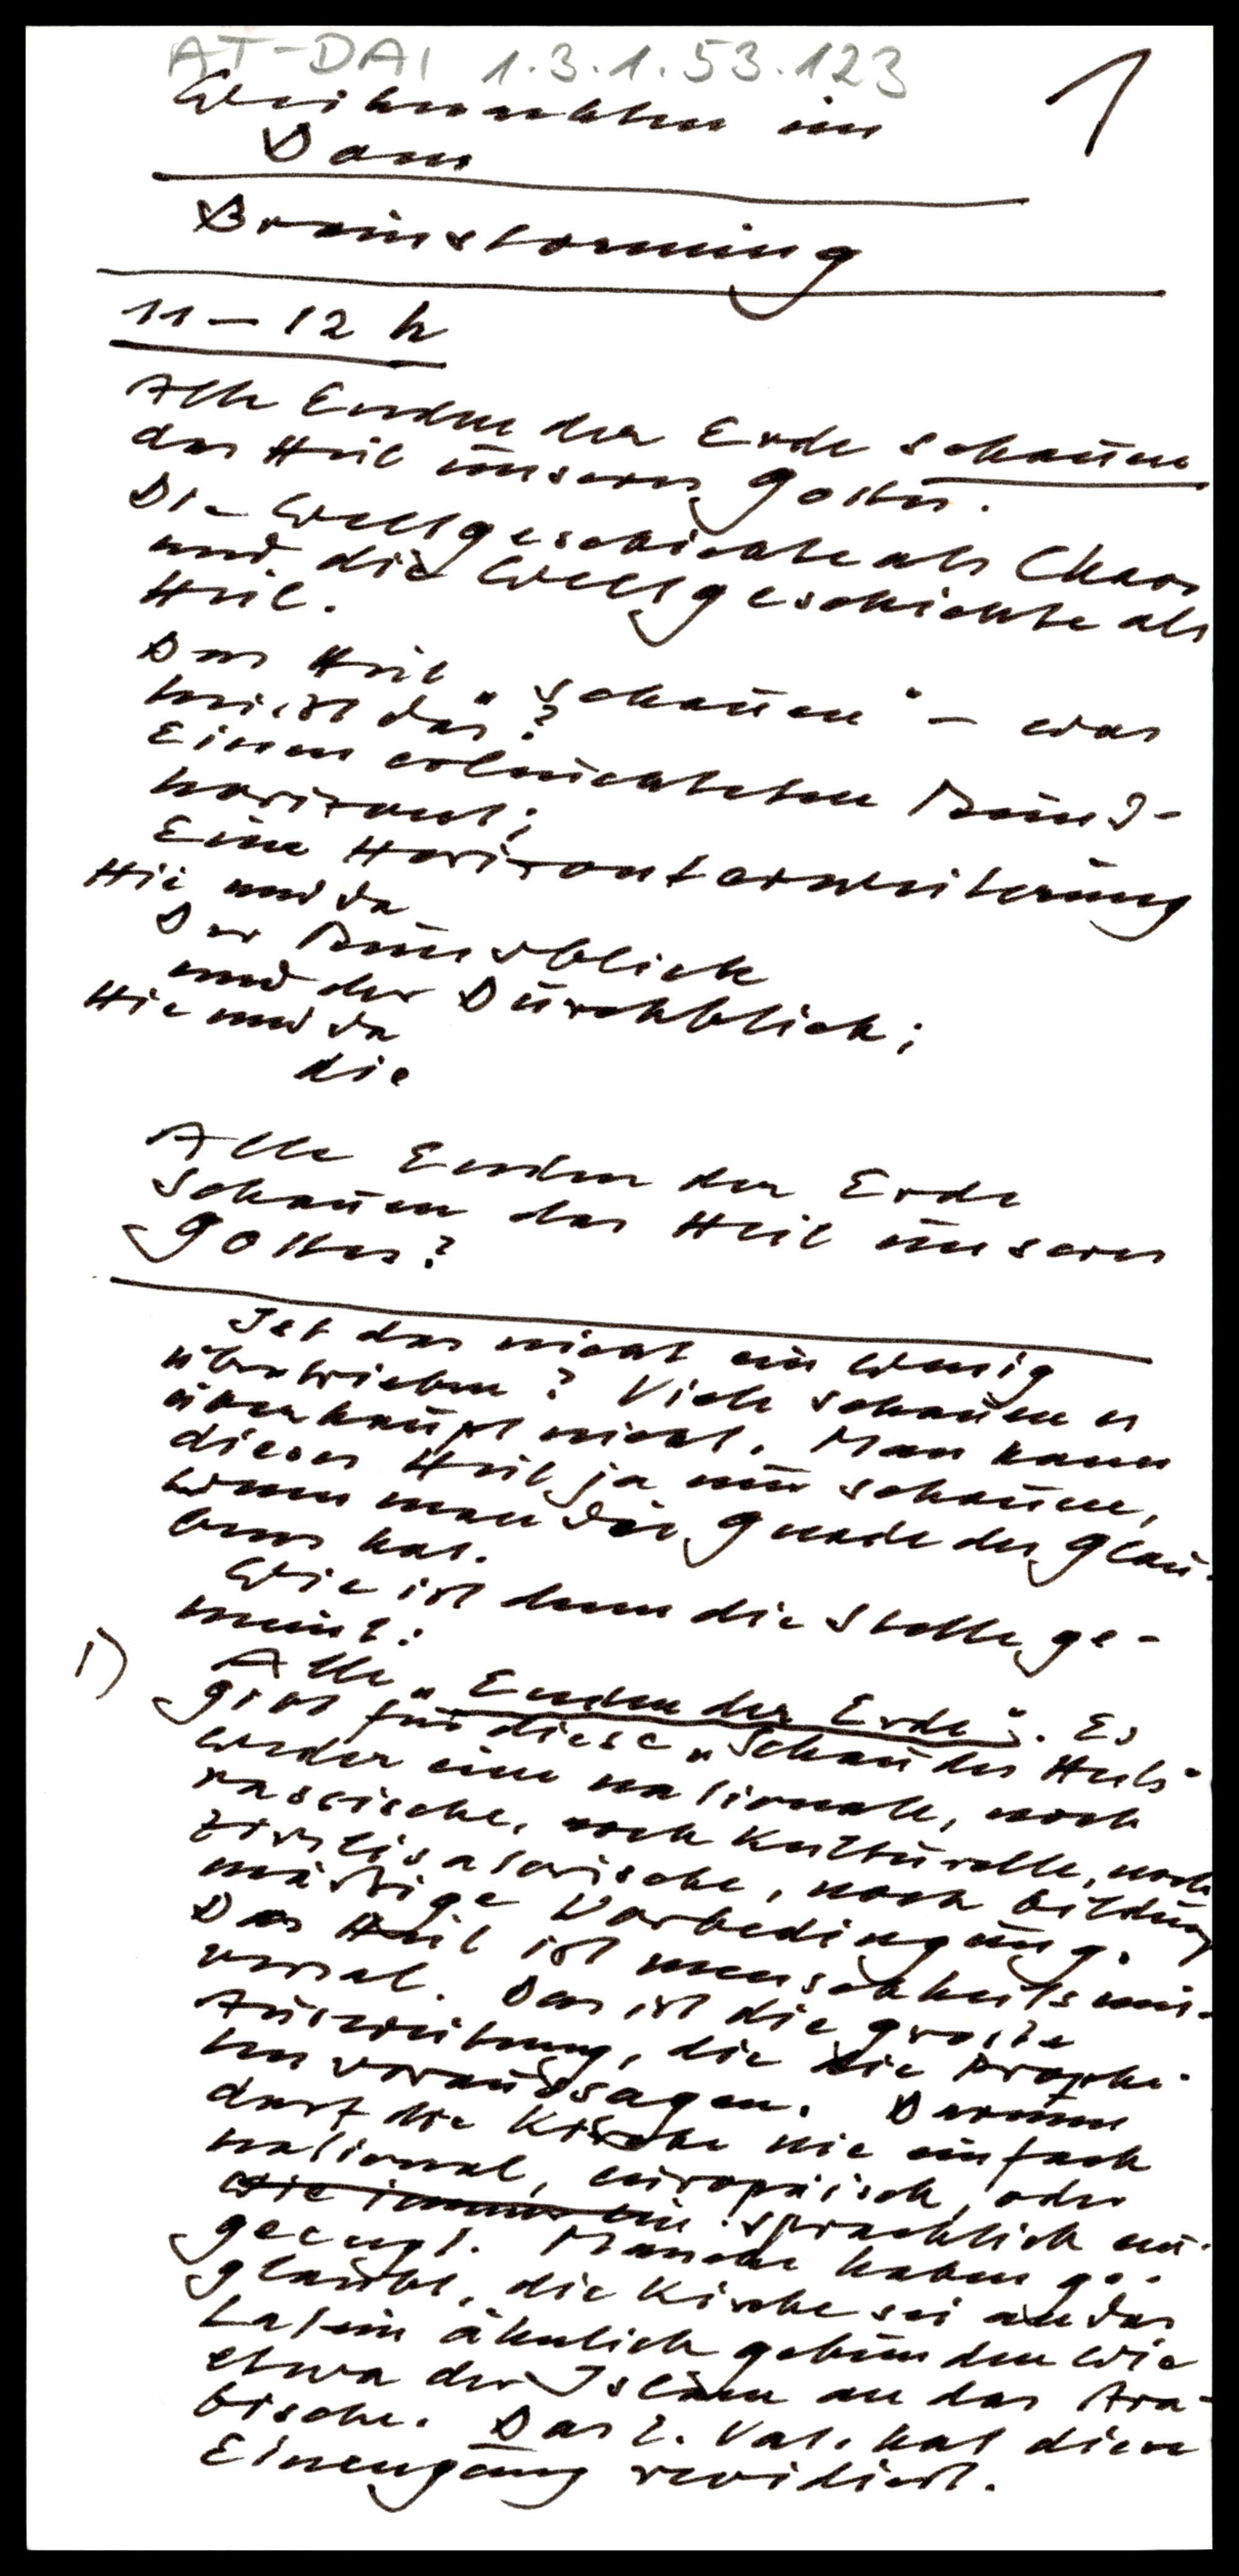 AT-DAI 1.3.1.53.123
1
Weihnachten im
Dom
Brainstorming
11-12 h
Alle Enden der Erde schauen
das Heil unseres Gottes.
Die Weltgeschichte als Chaos
und die Weltgeschichte als
Heil.
Das Heil „schauen" - was
heisst das?
Einen erleuchteten Rund-
horizont;
Eine Horizonterweiterung
Hie und da
Der Rundblick
und der Durchblick;
Hie und da
die
Alle Enden der Erde
schauen das Heil unseres
Gottes?
Ist das nicht ein wenig
übertrieben? Viele schauen es
überhaupt nicht. Man kann
dieses Heil ja nur schauen,
wenn man die Gnade des Glau-
bens hat.
Wie ist denn die Stelle ge-
meint:
1) Alle „Enden der Erde". Es
gibt für diese „Schau des Heils"
weder eine nationale, noch
rassische, noch kulturelle, noch
zivilisatorische, noch bildungs
mässige Vorbedingung.
Das Heil ist menschheitsuni-
versal. Das ist die grosse
Ausweitung, die die Prophe-
ten voraussagen. Darum
darf die Kirche nie einfach
national, europäisch, oder
wie immer ein sprachlich ein-
geengt. Manche haben ge-
glaubt, die Kirche sei an das
Latein ähnlich gebunden wie
etwa der Islam an das Ara-
bische. Das 2. Vat. hat diese
Einengung revidiert.